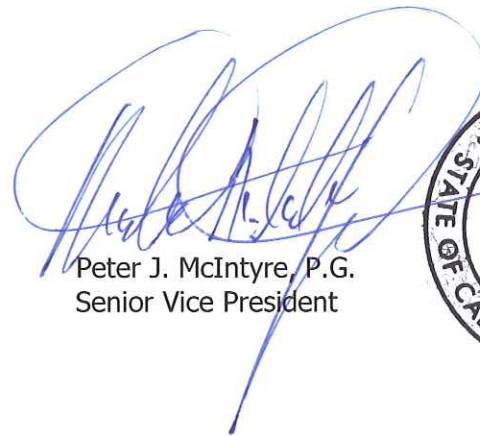 Peter J. McIntyre, P.G.
Senior Vice President
STATE OF CA